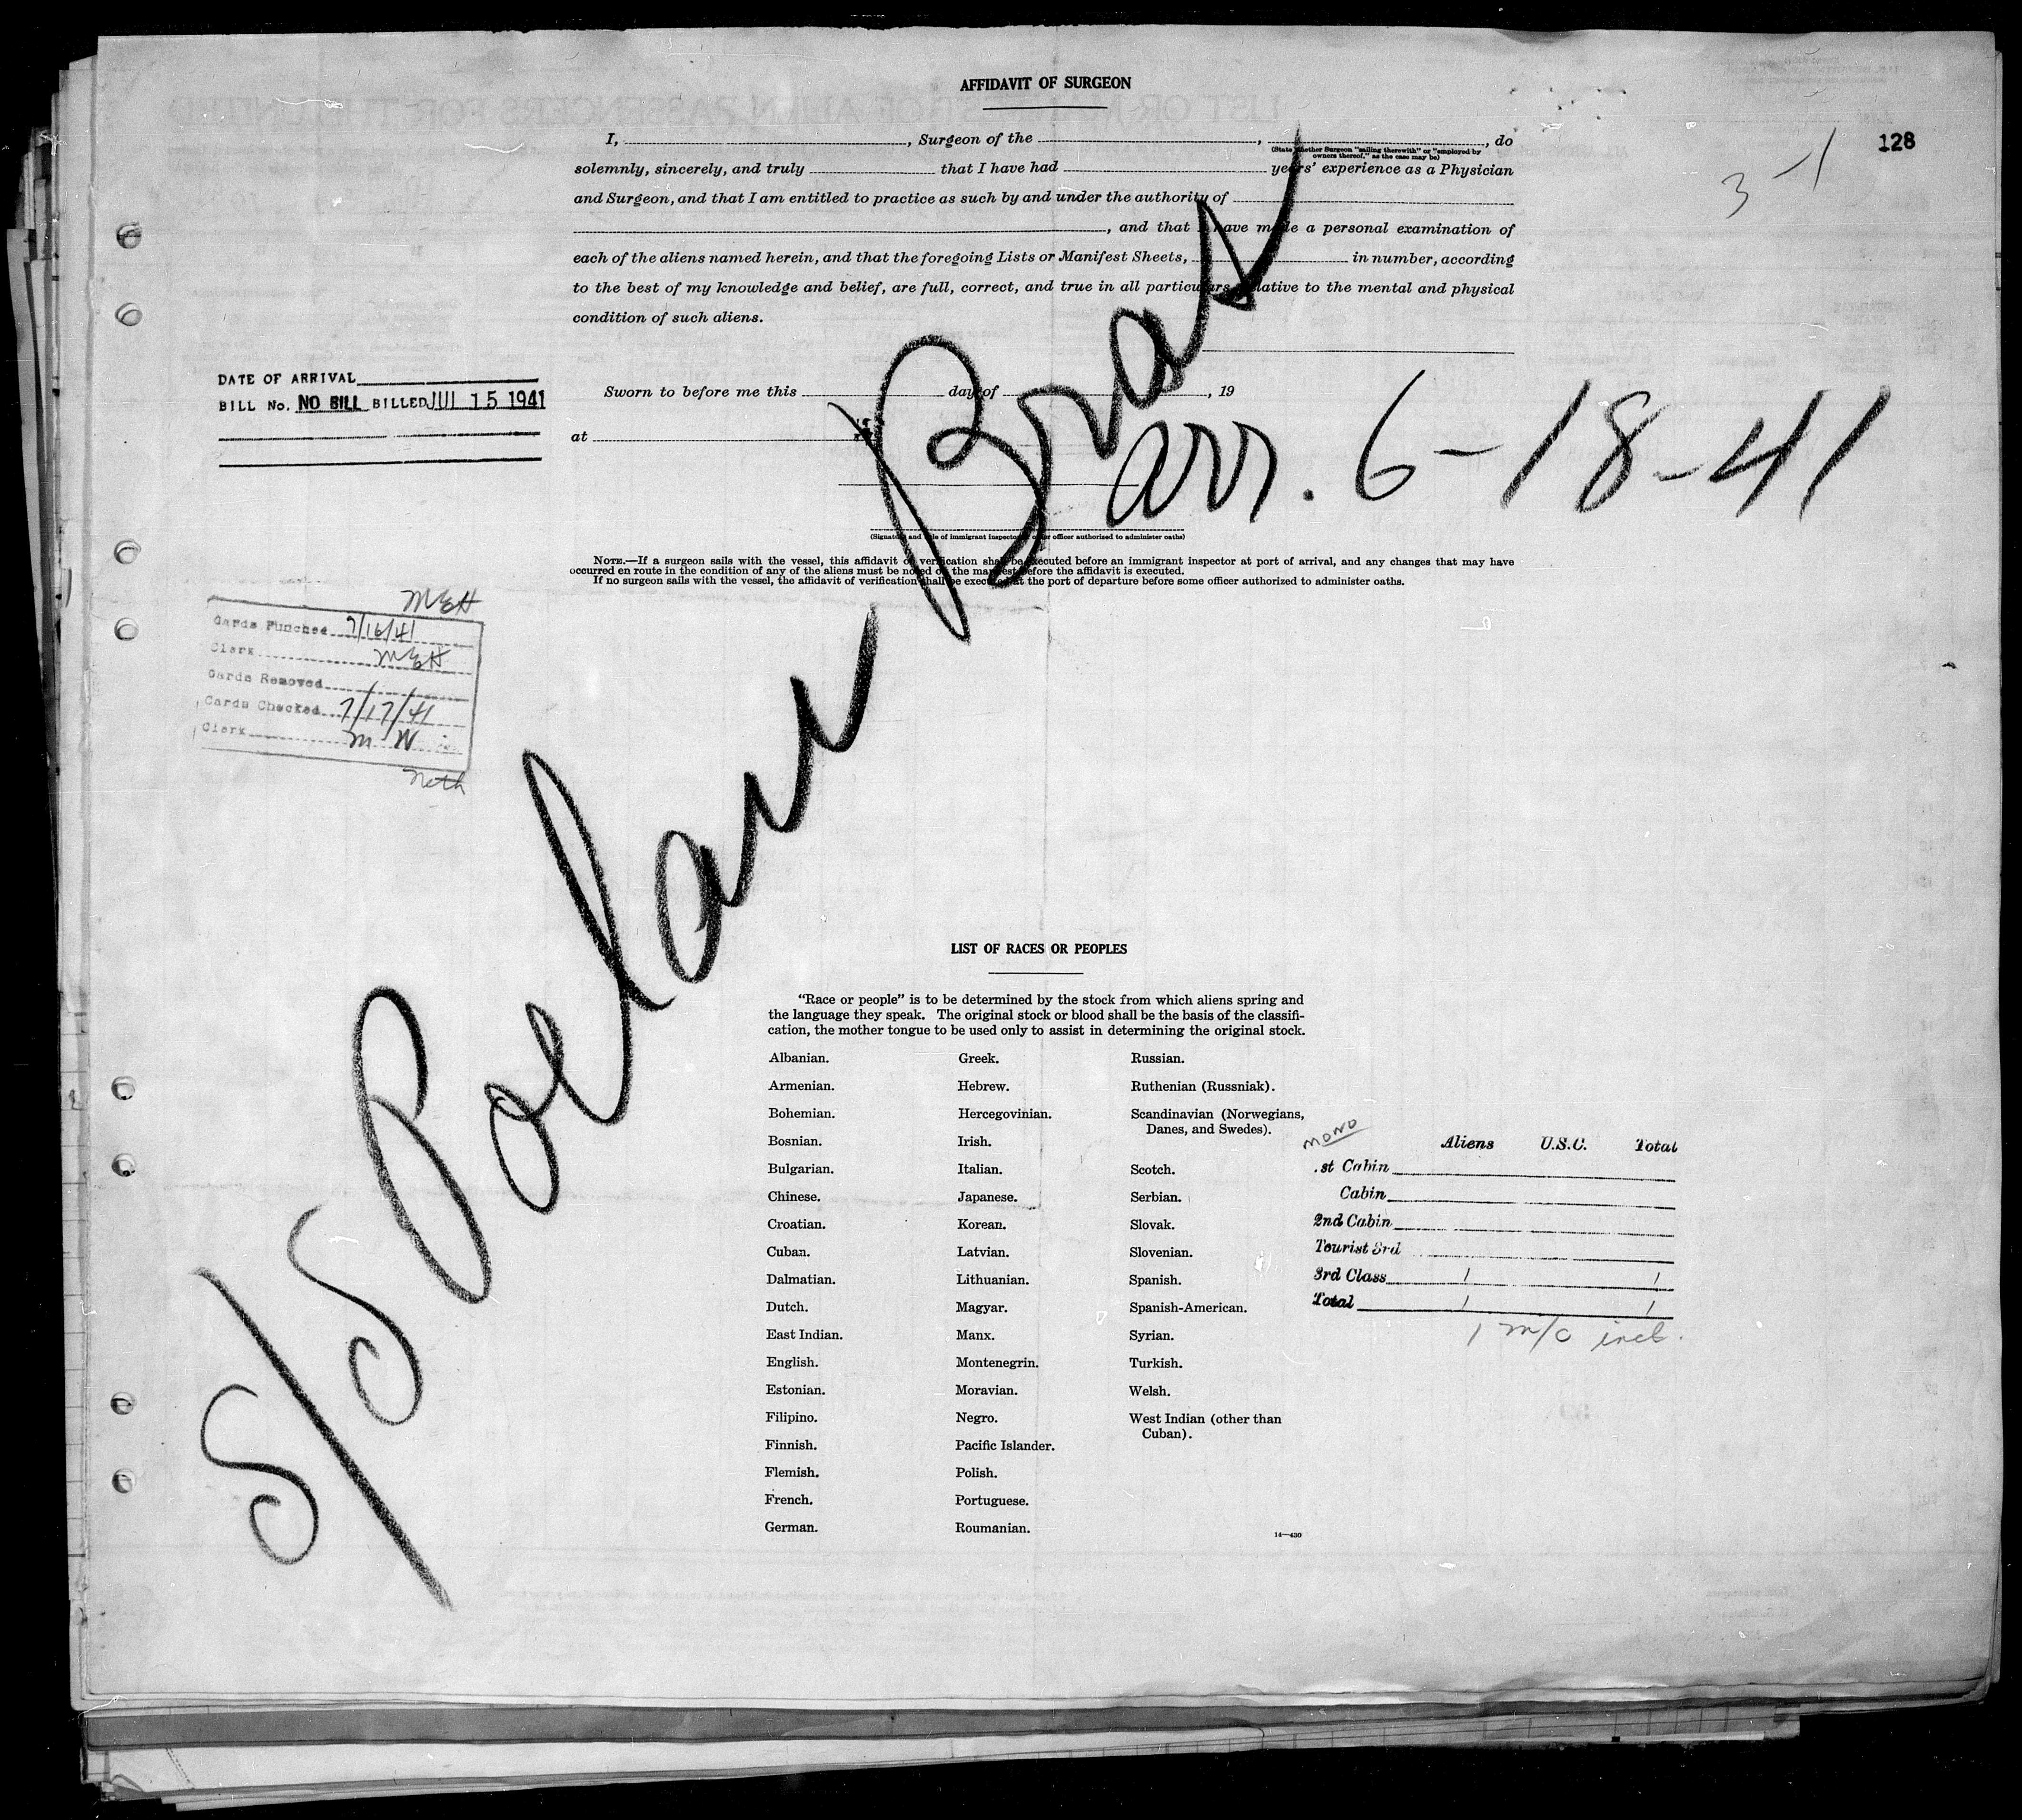 AFFIDAVIT OF SURGEON
128
3 - 1
I, , Surgeon of the , , do
(State whether Surgeon "sailing therewith" or "employed by
owners thereof," as the case may be)
solemnly, sincerely, and truly that I have had years' experience as a Physician
and Surgeon, and that I am entitled to practice as such by and under the authority of
, and that I have made a personal examination of
each of the aliens named herein, and that the foregoing Lists or Manifest Sheets, in number, according
to the best of my knowledge and belief, are full, correct, and true in all particulars relative to the mental and physical
condition of such aliens.
DATE OF ARRIVAL
BILL No. NO BILL BILLED JUL 15 1941
Sworn to before me this day of , 19
at
arr. 6-18-41
(Signature and title of immigrant inspector or other officer authorized to administer oaths)
NOTE.—If a surgeon sails with the vessel, this affidavit of verification shall be executed before an immigrant inspector at port of arrival, and any changes that may have
occurred en route in the condition of any of the aliens must be noted on the manifest before the affidavit is executed.
If no surgeon sails with the vessel, the affidavit of verification shall be executed at the port of departure before some officer authorized to administer oaths.
MEH
Cards Punched 7/16/41
Clerk MEH
Cards Removed
Cards Checked 7/17/41
Clerk M W
Neth
S/S Poelau Bras
LIST OF RACES OR PEOPLES
"Race or people" is to be determined by the stock from which aliens spring and
the language they speak. The original stock or blood shall be the basis of the classifi-
cation, the mother tongue to be used only to assist in determining the original stock.
Albanian.
Armenian.
Bohemian.
Bosnian.
Bulgarian.
Chinese.
Croatian.
Cuban.
Dalmatian.
Dutch.
East Indian.
English.
Estonian.
Filipino.
Finnish.
Flemish.
French.
German.
Greek.
Hebrew.
Hercegovinian.
Irish.
Italian.
Japanese.
Korean.
Latvian.
Lithuanian.
Magyar.
Manx.
Montenegrin.
Moravian.
Negro.
Pacific Islander.
Polish.
Portuguese.
Roumanian.
Russian.
Ruthenian (Russniak).
Scandinavian (Norwegians,
Danes, and Swedes).
Scotch.
Serbian.
Slovak.
Slovenian.
Spanish.
Spanish-American.
Syrian.
Turkish.
Welsh.
West Indian (other than
Cuban).
14—430
MONO
Aliens U.S.C. Total
.st Cabin
Cabin
2nd Cabin
Tourist 3rd
3rd Class 1 1
Total 1 1
1 m/c incl.